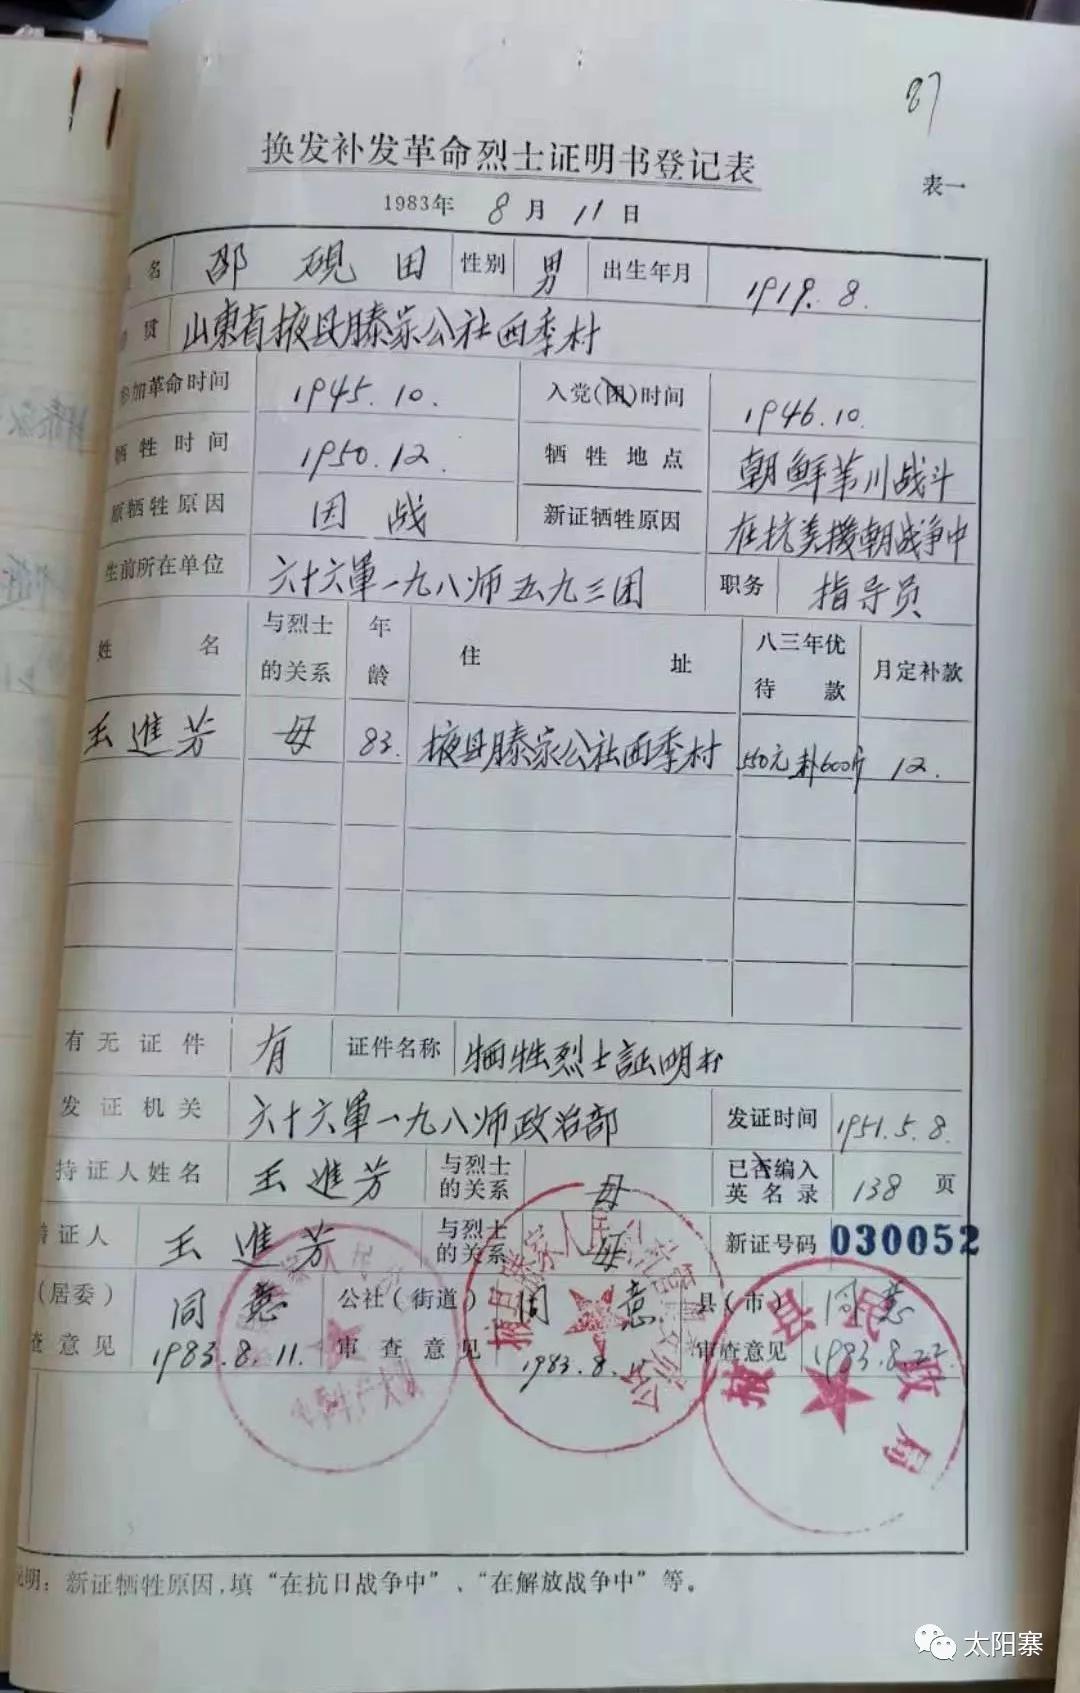 87
换发补发革命烈士证明书登记表
表一
1983年 8 月 11 日
名 邵砚田 性别 男 出生年月 1919.8.
贯 山東省掖县滕家公社西季村
参加革命时间 1945.10. 入党(团)时间 1946.10.
牺牲时间 1950.12. 牺牲地点 朝鲜 川战斗
原牺牲原因 因战 新证牺牲原因 在抗美援朝战争中
生前所在单位 六十六軍一九八师五九三团 职务 指导员
姓名 与烈士的关系 年龄 住址 八三年优待款 月定补款
王進芳 母 83. 掖县滕家公社西季村 550元 600斤 12.
有无证件 有 证件名称 牺牲烈士証明书
发证机关 六十六軍一九八师政治部 发证时间 1951.5.8.
持证人姓名 王進芳 与烈士的关系 母 已否编入英名录 138 页
证人 王進芳 与烈士的关系 母 新证号码 030052
(居委) 查意见 同意 1983.8.11. 公社(街道)审查意见 同意 1983.8. 县(市)审查意见 同意 1983.8.22.
掖县民政局
说明：新证牺牲原因,填“在抗日战争中”、“在解放战争中”等。
太阳寨